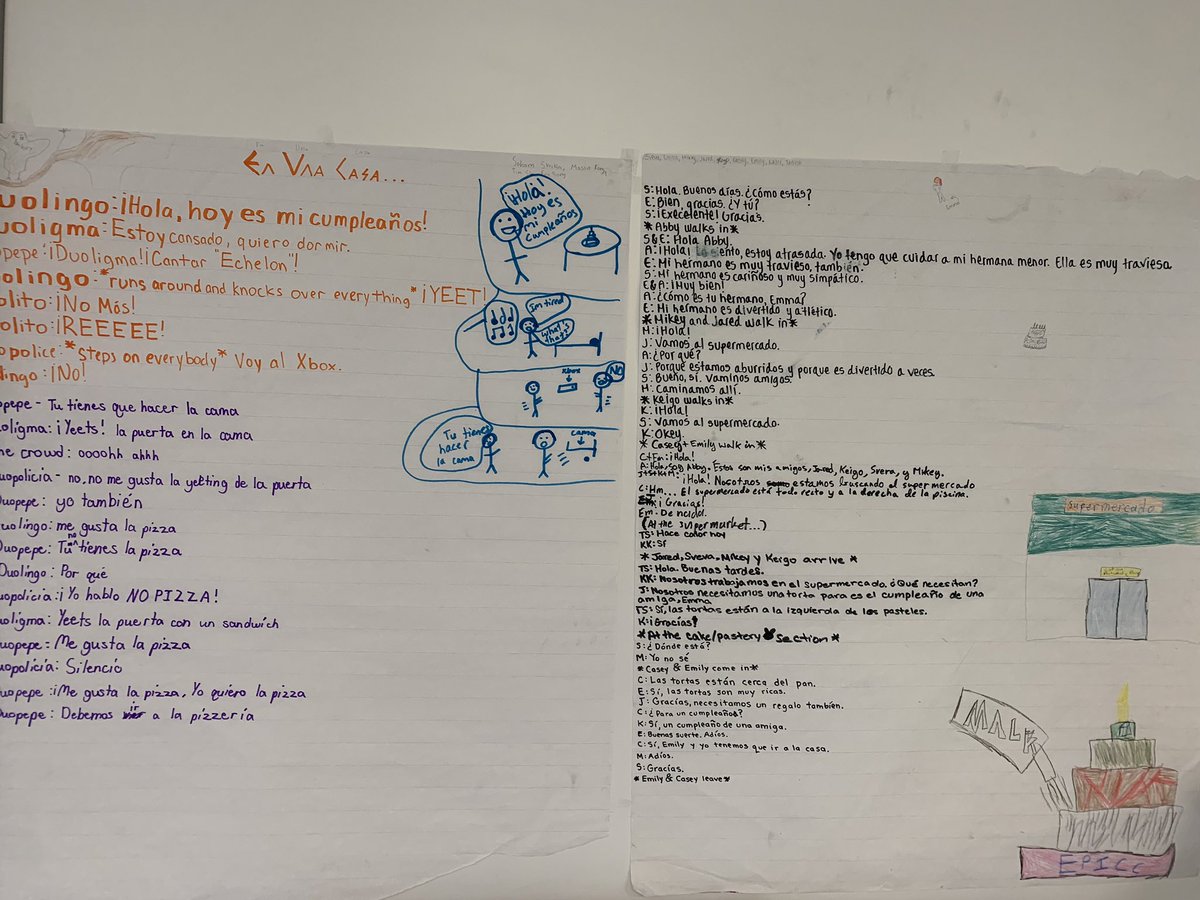 En Una Casa...
uolingo: ¡Hola, hoy es mi cumpleaños!
uoligma: Estoy cansado, quiero dormir.
opepe: ¡Duoligma! ¡Cantar "Echelon"!
olingo: *runs around and knocks over everything* ¡YEET!
olito: ¡No Más!
olito: ¡REEEEE!
opolice: *steps on everybody* Voy al Xbox.
lingo: ¡No!
opepe - Tu tienes que hacer la cama
oligma: ¡Yeets! la puerta en la cama
he crowd: oooohh ahhh
uopolicia - no, no me gusta la yeeting de la puerta
uopepe: yo también
uolingo: me gusta la pizza
Duopepe: Tu no tienes la pizza
Duolingo: Por qué
uopolicia: ¡Yo hablo NO PIZZA!
uoligma: Yeets la puerta con un sandwich
uopepe: Me gusta la pizza
uopolicia: Silenció
uopepe: ¡Me gusta la pizza, Yo quiero la pizza
Duopepe: Debemos ir a la pizzería
¡Hola!
Hoy es
mi
cumpleaños
Im tired
What's
that?
Xbox
NO
Tu tienes
hacer
la cama
cama
S: Hola. Buenos días. ¿Cómo estás?
E: Bien, gracias. ¿Y tú?
S: ¡Execelente! Gracias.
* Abby walks in*
S&E: Hola Abby.
A: ¡Hola! Lo siento, estoy atrasada. Yo tengo que cuidar a mi hermana menor. Ella es muy traviesa
E: Mi hermano es muy travieso, también.
S: Mi hermano es cariñoso y muy simpático.
E&A: ¡Muy bien!
A: ¿Cómo es tu hermano, Emma?
E: Mi hermano es divertido y atlético.
*Mikey and Jared walk in*
M: ¡Hola!
J: Vamos al supermercado.
A: ¿Por qué?
J: Porque estamos aburridos y porque es divertido a veces.
S: Bueno, sí. Vaminos amigos.
M: Caminamos allí.
* Keigo walks in*
K: ¡Hola!
S: Vamos al supermercado.
K: Okey.
* Casey + Emily walk in*
C+Em: ¡Hola!
A: Hola, soy Abby. Estos son mis amigos, Jared, Keigo, Svera, y Mikey.
J+S+K+M: ¡Hola! Nosotros estamos buscando el supermercado
C: Hm... El supermercado está todo recto y a la derecha de la piscina.
¡Gracias!
Em: De nada.
(At the supermarket...)
TS: Hace calor hoy
KK: Sí
* Jared, Sveva, Mikey y Keigo arrive *
TS: Hola. Buenas tardes.
KK: Nosotros trabajamos en el supermercada ¿Qué necesitan?
J: Nosotros necesitamos una torta para es el cumpleaño de una
amiga, Emma
TS: Sí, las tortas están a la izquierda de los pasteles.
K: ¡Gracias!
*At the cake/pastery section *
S: ¿Dónde está?
M: Yo no sé
*Casey & Emily come in*
C: Las tortas están cerca del pan.
E: Sí, las tortas son muy ricas.
J: Gracias, necesitamos un regalo también.
C: ¿Para un cumpleaños?
K: Sí, un cumpleaño de una amiga.
E: Buena suerte. Adíos.
C: Sí, Emily y yo tenemos que ir a la casa.
M: Adíos.
S: Gracías.
*Emily & Casey leave*
Supermercado
MALK
EPICC